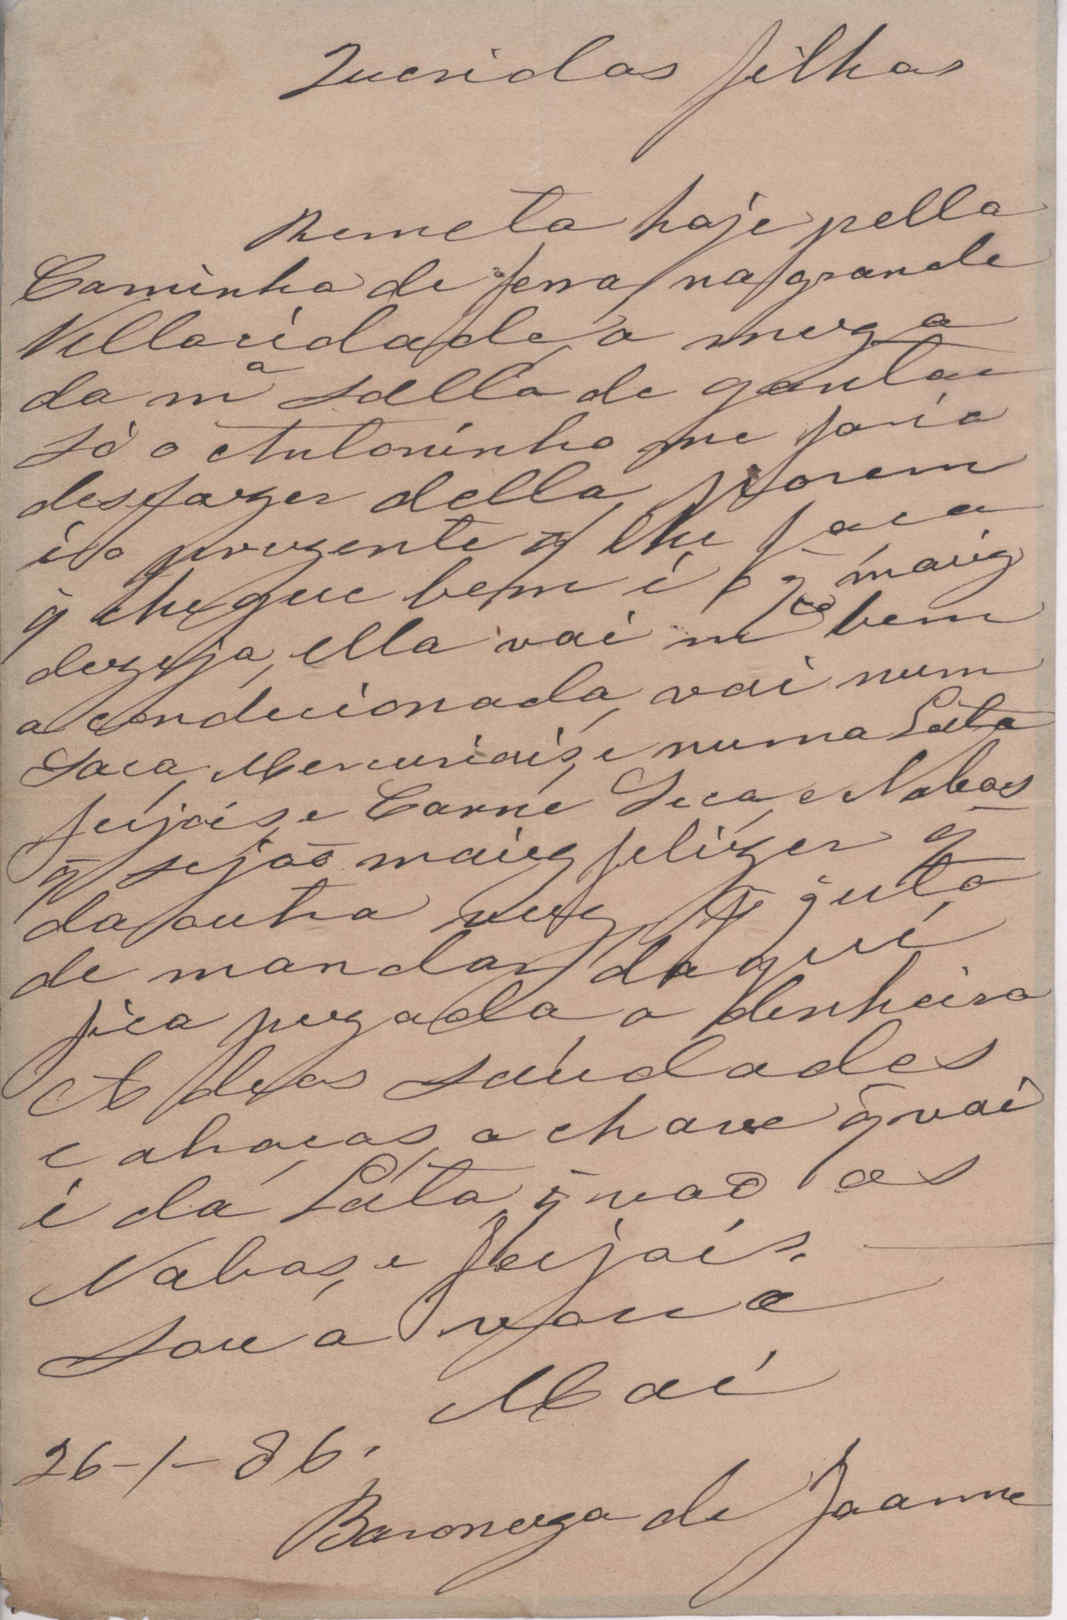 Queridas filhas
Remeto hoje pella
Caminho de ferro, na grande
Vellocidade, a meza
da mª salla de gantar
só o Antoninho me faria
desfazer della, porem
é o prezente q̃ lhe faça
q̃ chegue bem é o q̃ maiz
dezeja, ella vai mto bem
acondicionada, vai num
Saca, Mercuriais, e numa Lata
feijois, e Carne Seca, e Nabos
q̃ sejão maiz felizer q̃
da outra vez, q̃
de mandar, daqui
fica pezada o denheiro
A deos saudades
e abraços, a chave q̃ vai
é da Lata, q̃ vão os
Nabos, e feijois.
Sou a
Mai
26-1-86.
Baroneza de